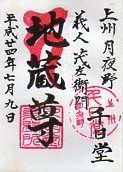 上州月夜野
千日堂
義人茂左衛門
地蔵尊
平成廿四年七月九日